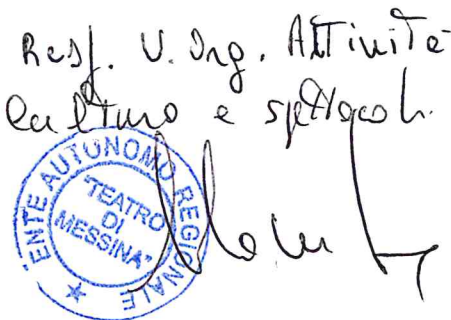 Resp. U. Org. Attività
Cultura e spettacoli
ENTE AUTONOMO REGIONALE
"TEATRO
DI
MESSINA"